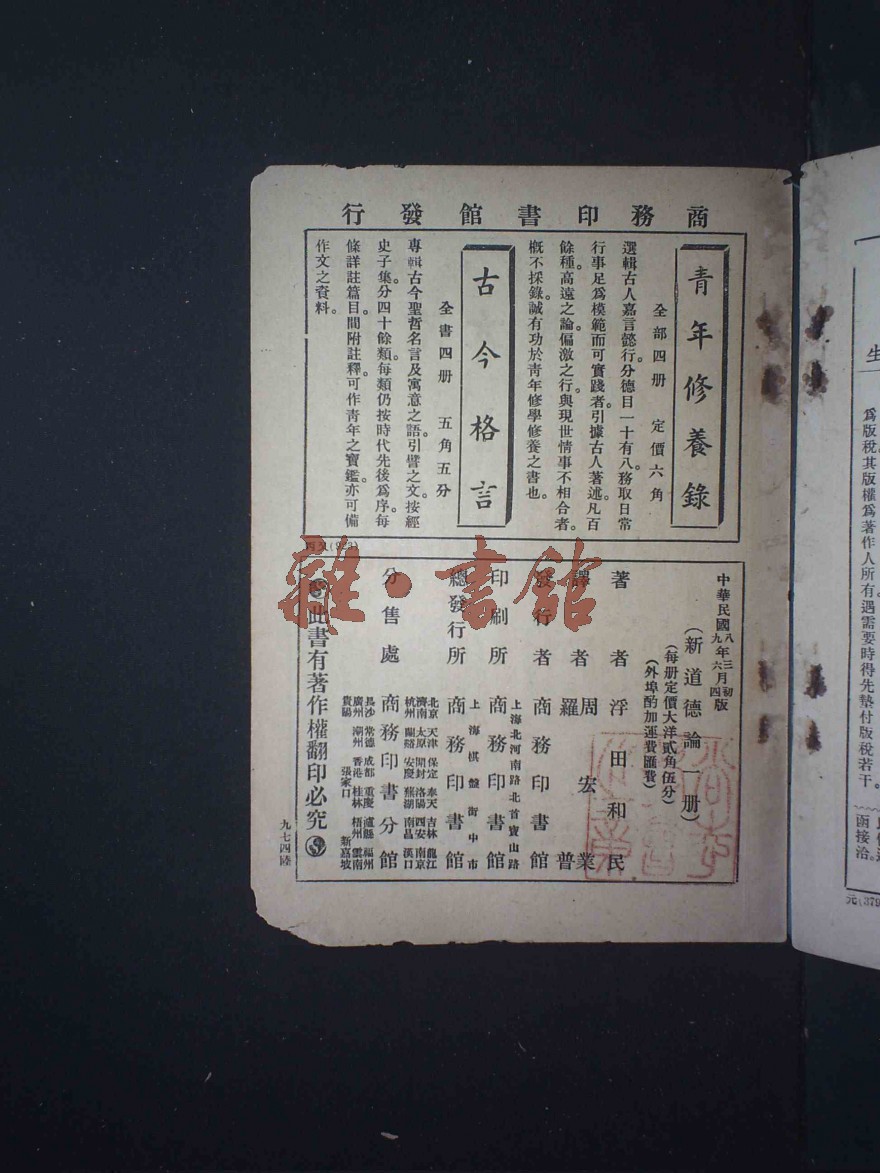 商務印書館發行
青年修養錄
全部四册　定價六角
選輯古人嘉言懿行。分德目一十有八。務取日常
行事足爲模範而可實踐者。引據古人著述。凡百
餘種。高遠之論。偏激之行。與現世情事不相合者。
概不採錄。誠有功於靑年修學修養之書也。
古今格言
全書四册　五角五分
專輯古今聖哲名言及寓意之語。引譬之文。按經
史子集。分四十餘類。每類仍按時代先後爲序。每
條詳註篇目。間附註釋。可作靑年之寶鑑。亦可備
作文之資料。
中華民國八年三月初版
九年六月四版
（新道德論一册）
（每册定價大洋貳角伍分）
（外埠酌加運費匯費）
著者　浮田和民
譯者　周宏業
羅普
發行者　商務印書館
上海北河南路北首寶山路
印刷所　商務印書館
上海棋盤街中市
總發行所　商務印書館
北京　天津　保定　奉天　吉林　龍江
濟南　太原　開封　洛陽　西安　南京
杭州　蘭谿　安慶　蕪湖　南昌　漢口
分售處　商務印書分館
長沙　常德　成都　重慶　瀘縣　福州
廣州　潮州　香港　桂林　梧州　雲南
貴陽　張家口　新嘉坡
此書有著作權翻印必究
九七四陸
雜·書館
生
爲版稅其版權爲著作人所有。遇需要時得先墊付版稅若干。
函接洽。
元(379